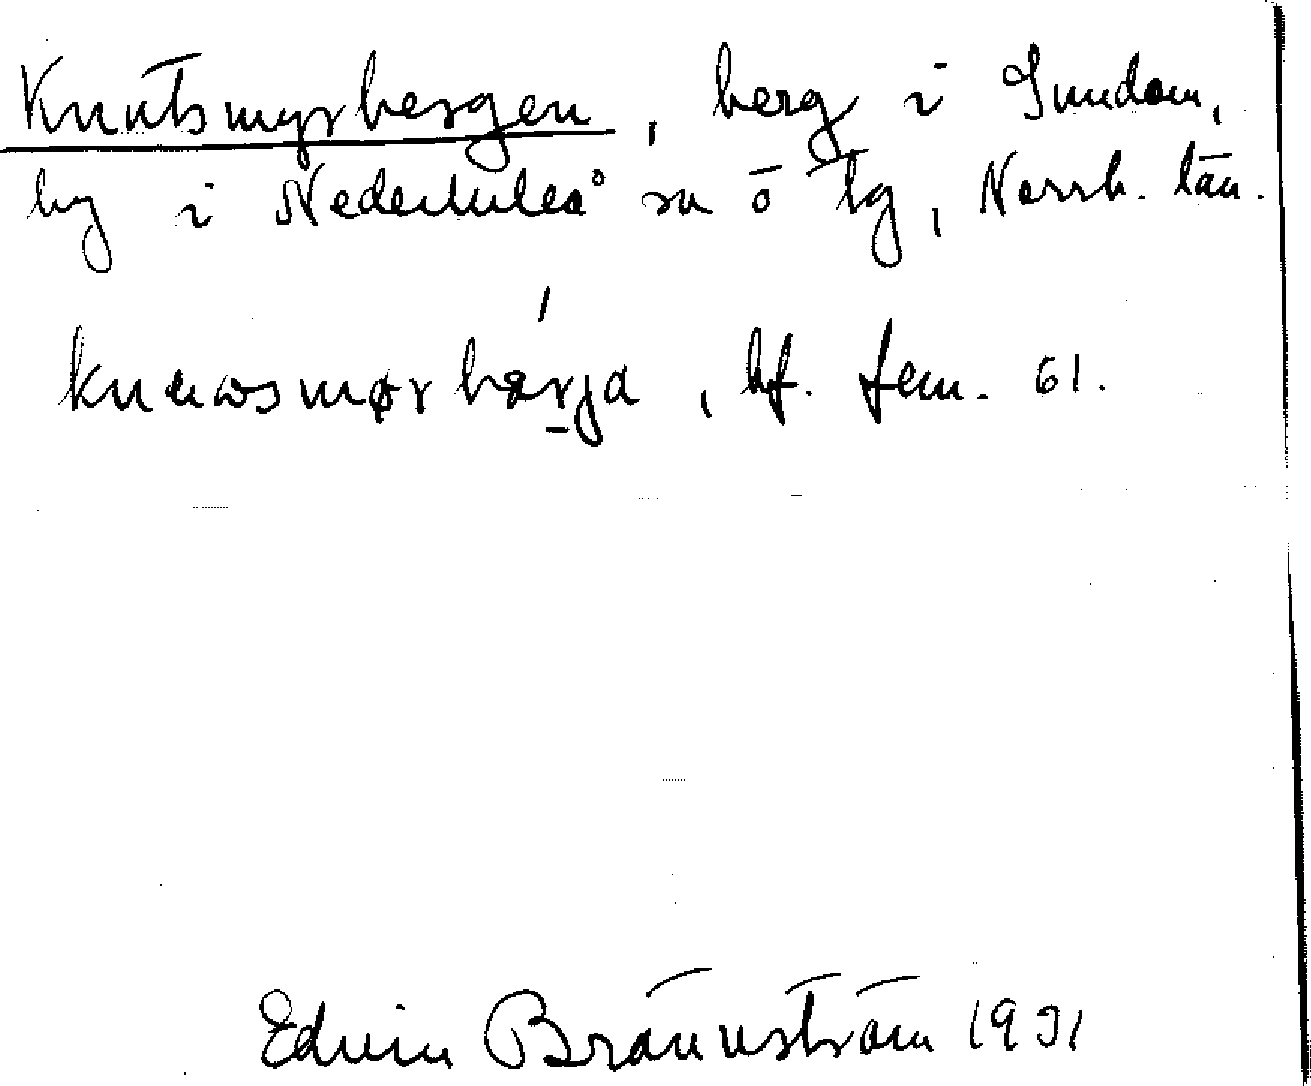 Knutsmyrbergen, berg i Sundom,
by i Nederluleå sn ö tg, Norrb. län.
bf. fem. 61.
Edvin Brännström 1931